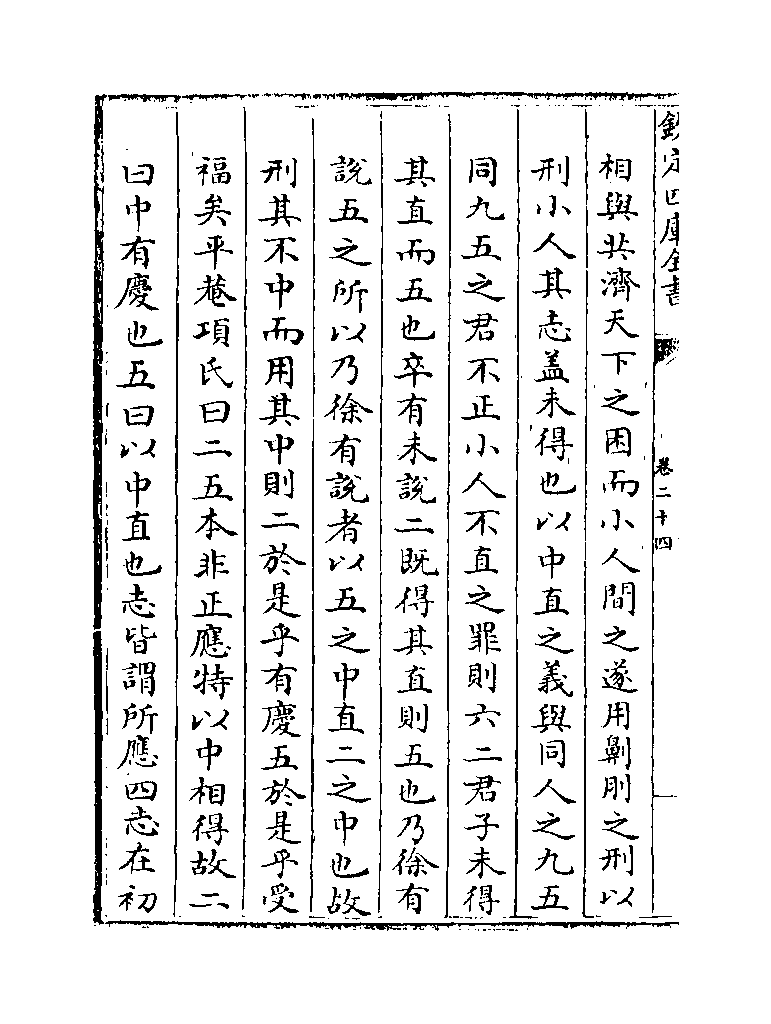 欽定四庫全書
卷二十四
相與共濟天下之困而小人間之遂用劓刖之刑以
刑小人其志盖未得也以中直之義與同人之九五
同九五之君不正小人不直之罪則六二君子未得
其直而五也卒有未說二既得其直則五也乃徐有
說五之所以乃徐有說者以五之中直二之中也故
刑其不中而用其中則二於是乎有慶五於是乎受
福矣平菴項氏曰二五本非正應特以中相得故二
曰中有慶也五曰以中直也志皆謂所應四志在初